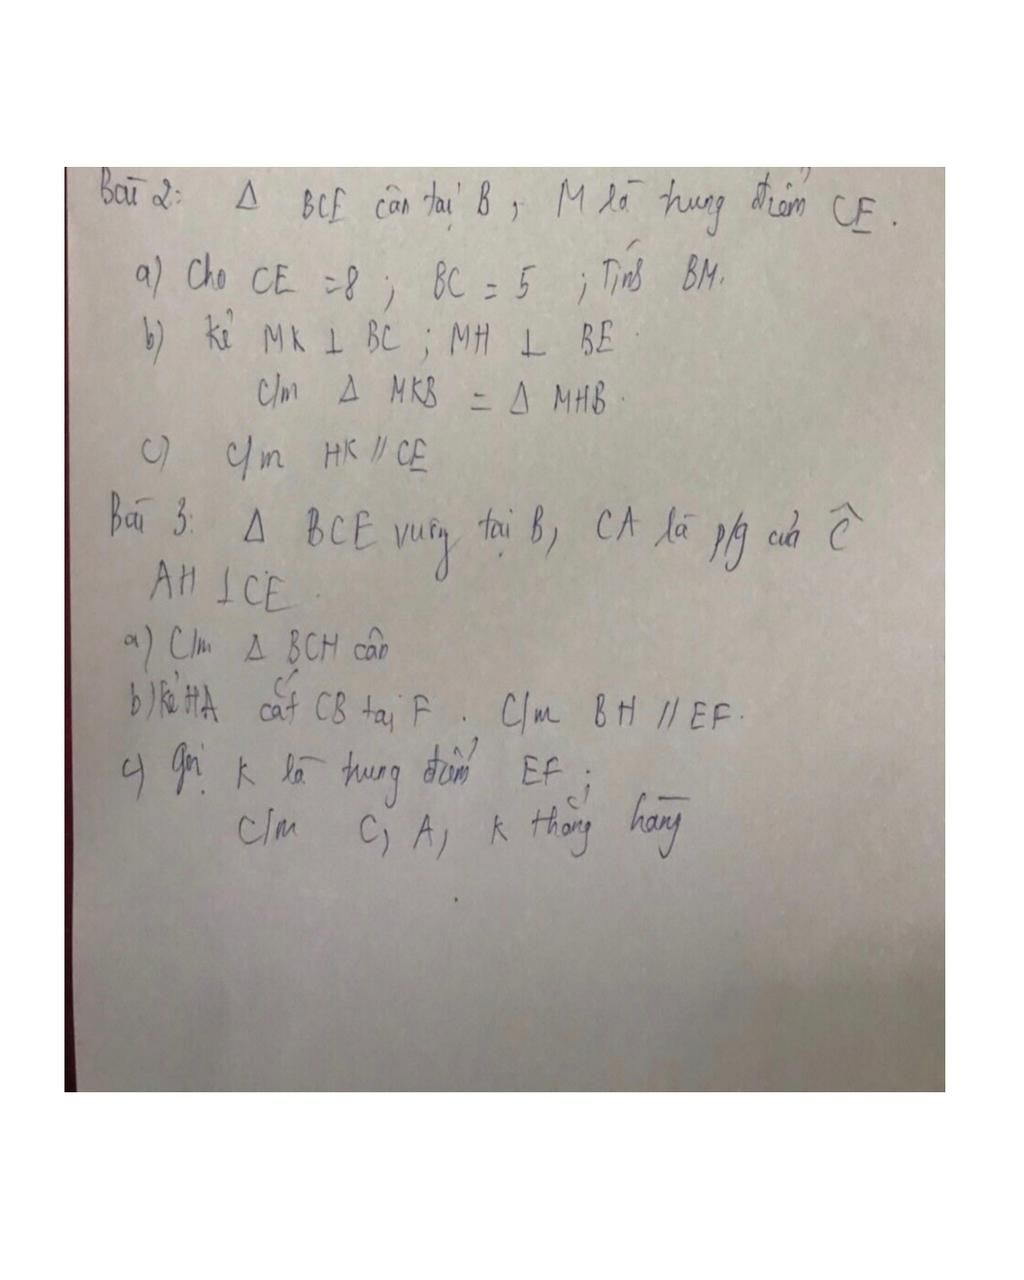 Bài 2: Δ BCE cân tại B, M là trung điểm CE.
a) Cho CE = 8 ; BC = 5 ; Tính BM.
b) Kẻ MK ⊥ BC ; MH ⊥ BE
C/m Δ MKB = Δ MHB.
c) C/m HK // CE
Bài 3: Δ BCE vuông tại B, CA là p/g của Ĉ
AH ⊥ CE.
a) C/m Δ BCH cân
b) Kẻ HA cắt CB tại F. C/m BH // EF.
c) Gọi K là trung điểm EF ;
C/m C, A, K thẳng hàng